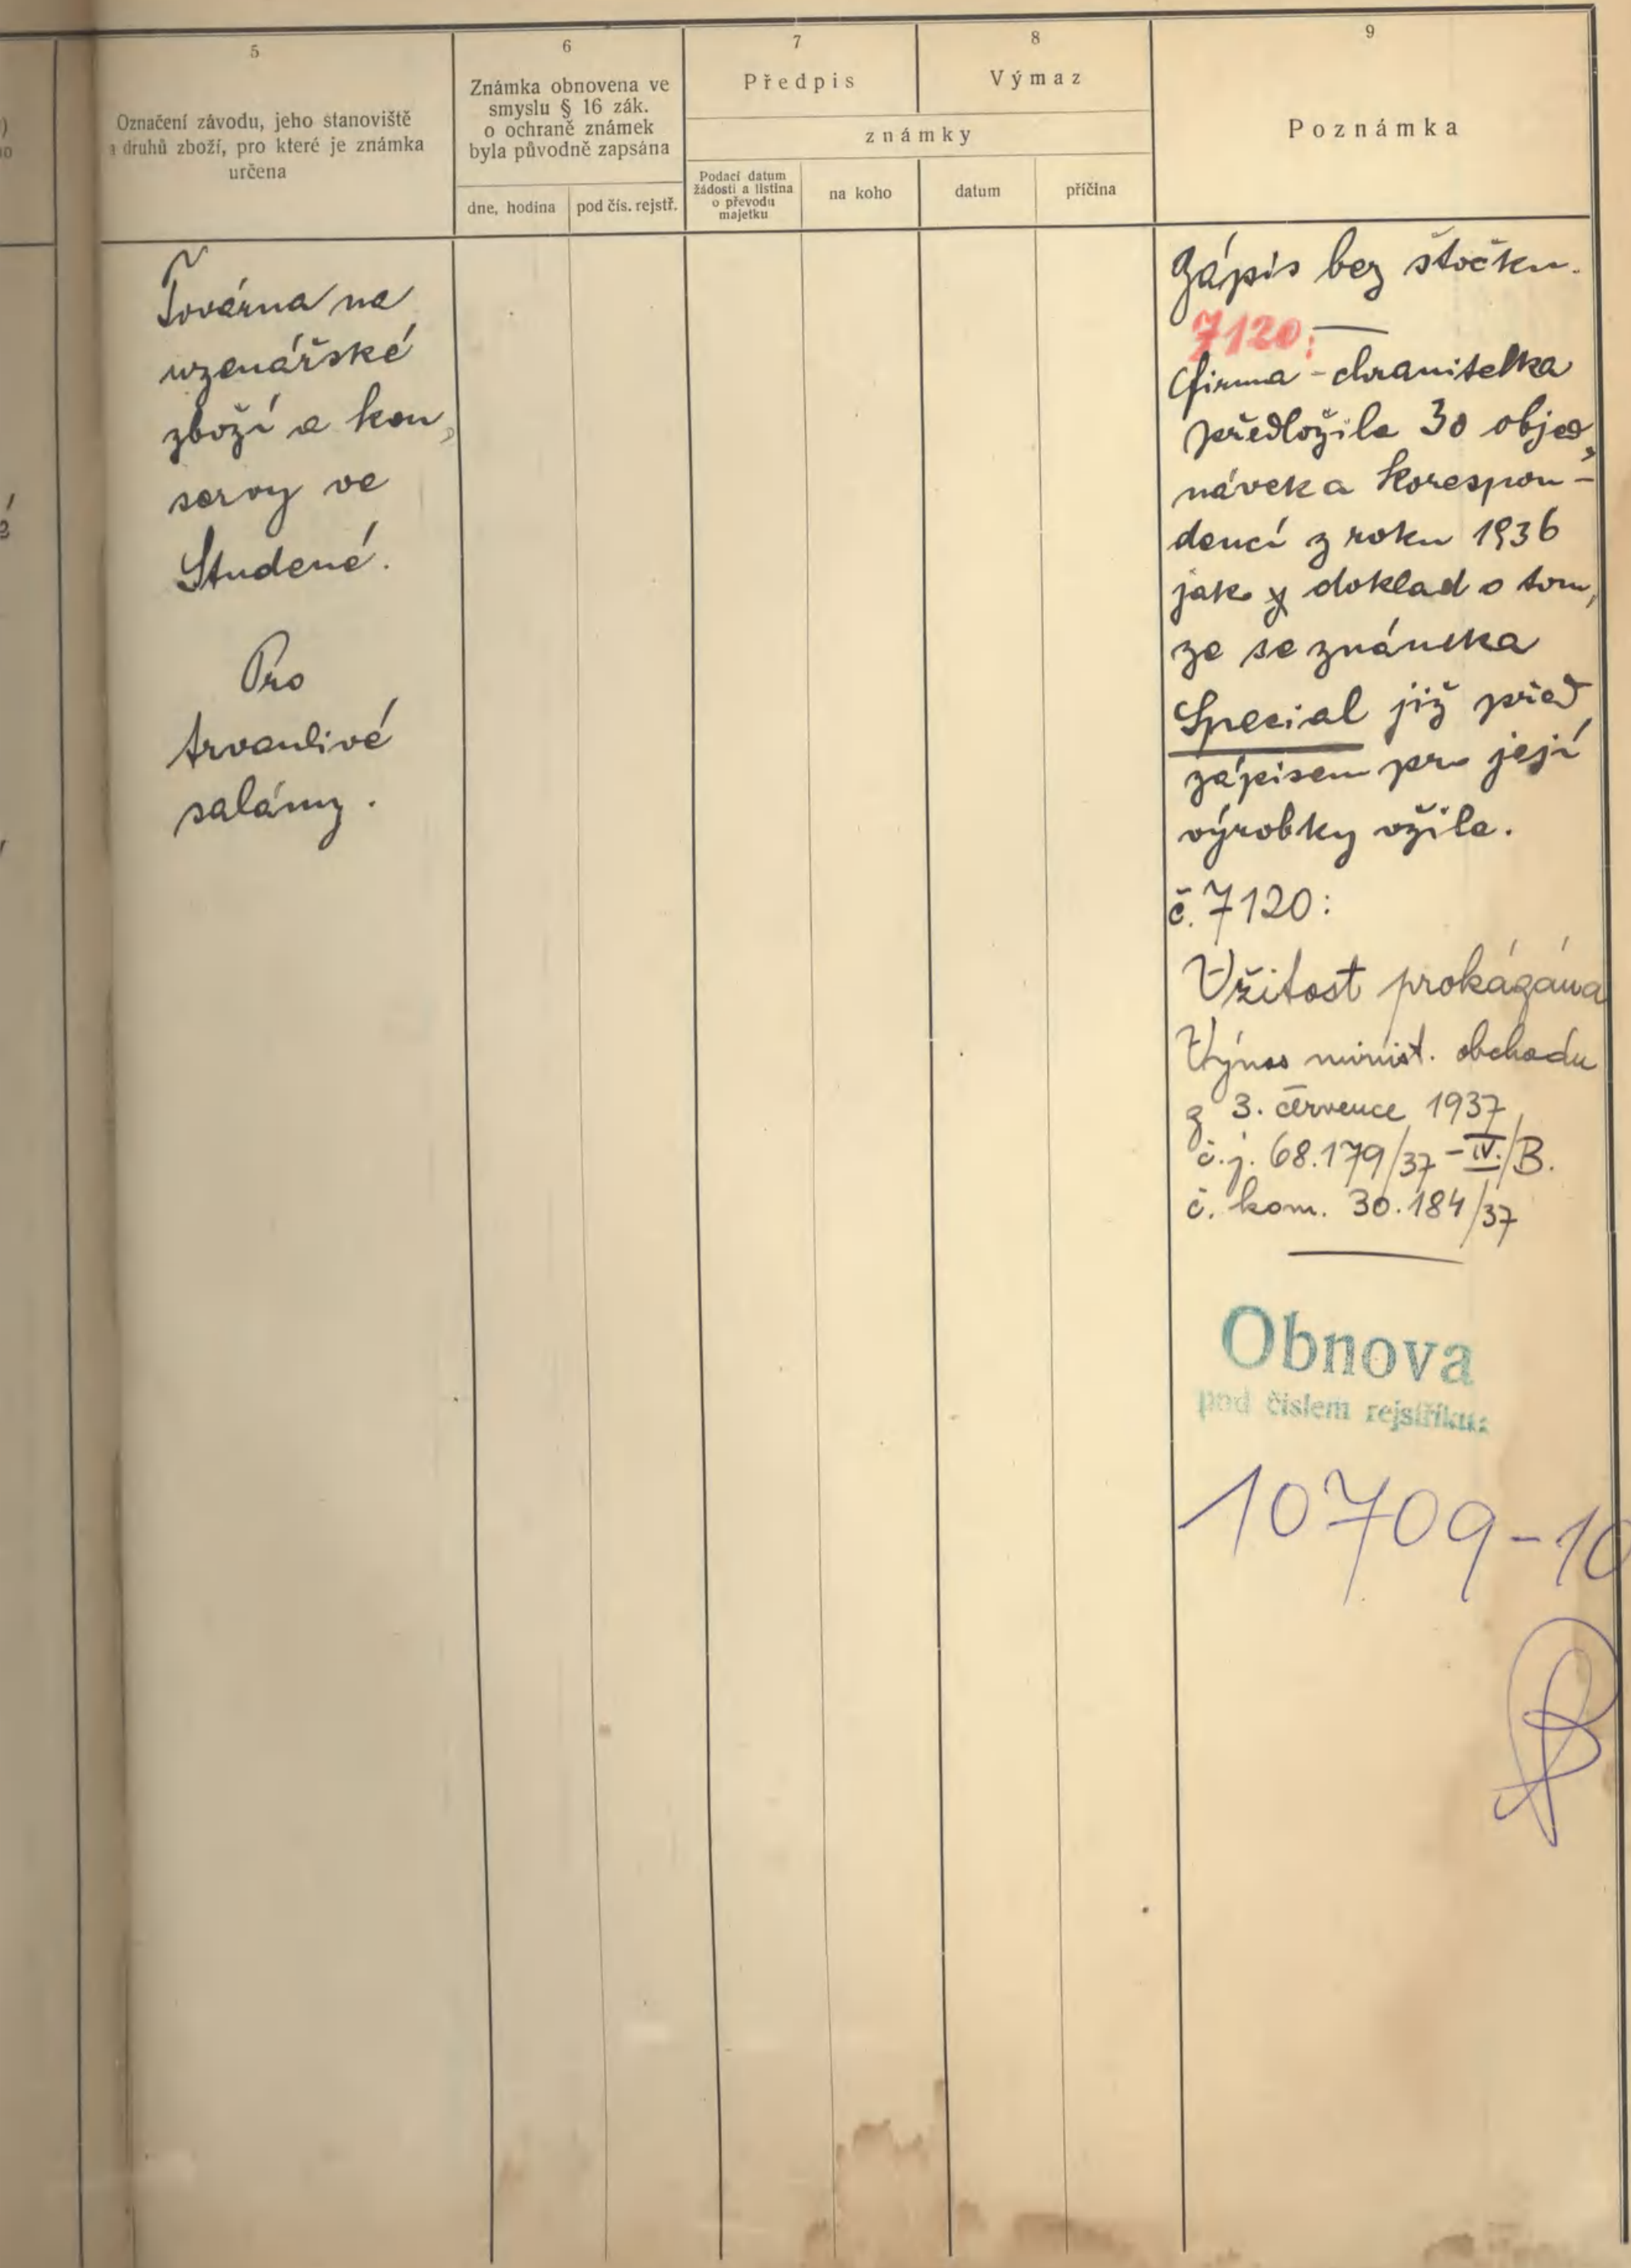 5
Označení závodu, jeho stanoviště
a druhů zboží, pro které je známka
určena
6
Známka obnovena ve
smyslu § 16 zák.
o ochraně známek
byla původně zapsána
dne, hodina
pod čís. rejstř.
7
Předpis
8
Výmaz
známky
Podací datum
žádosti a listina
o převodu
majetku
na koho
datum
příčina
9
Poznámka
Továrna na
uzenářské
zboží a kon„
servy ve
Studené.
Pro
trvanlivé
salámy.
Zápis bez štočku.
7120:
firma-chranitelka
předložila 30 objed„
návek a korespon-
dencí z roku 1936
jako doklad o tom,
že se známka
Special již před
zápisem pro její
výrobky vžila.
č. 7120:
Vžitost prokázána
Výnos minist. obchodu
z 3. července 1937
č.j. 68.179/37-IV./B.
č. kom. 30.184/37
Obnova
pod číslem rejstříku:
10709-10